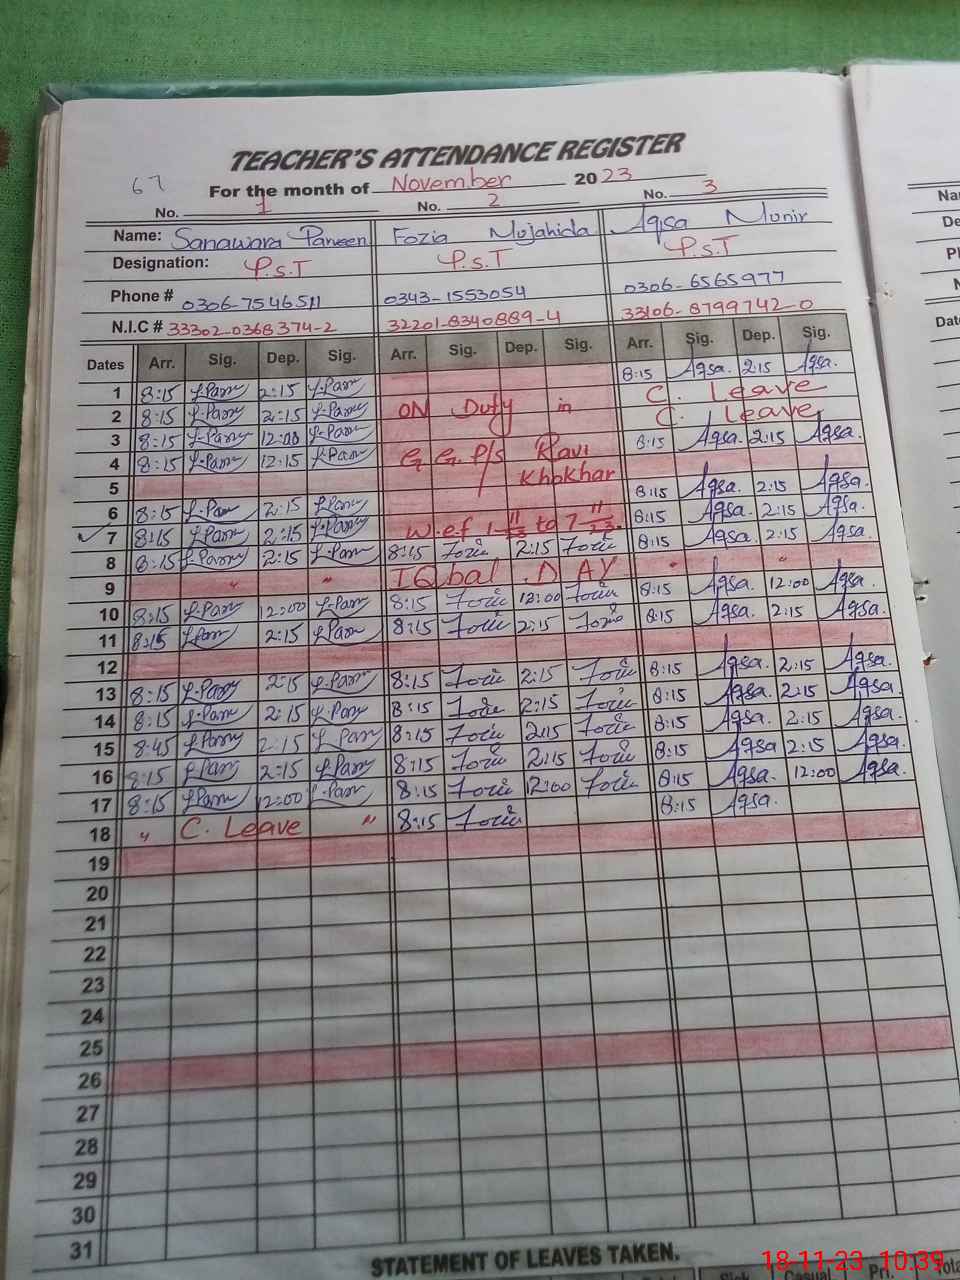 TEACHER'S ATTENDANCE REGISTER
67 For the month of November 2023
No. 1 No. 2 No. 3
Name: Sanawara Parveen Fozia Mujahida Aqsa Munir
Designation: P.S.T P.S.T P.S.T
Phone # 0306-7546511 0343-1553054 0306-6565977
N.I.C # 33302-0368374-2 32201-8340889-4 33106-8799742-0
Dates Arr. Sig. Dep. Sig. Arr. Sig. Dep. Sig. Arr. Sig. Dep. Sig.
1 8:15 2:15 8:15 Aqsa. 2:15 Aqsa.
2 8:15 2:15 ON Duty in C. Leave
3 8:15 12:00 C. Leave
4 8:15 12:15 G G P/S Ravi 8:15 Aqsa. 2:15 Aqsa.
5 Khokhar
6 8:15 2:15 8:15 Aqsa. 2:15 Aqsa.
7 8:15 2:15 w.e.f 1-11/23 to 7-11/23. 8:15 Aqsa. 2:15 Aqsa.
8 8:15 2:15 8:15 Fozia 2:15 Fozia 8:15 Aqsa. 2:15 Aqsa.
9 " " IQbal DAY " "
10 8:15 12:00 8:15 Fozia 12:00 Fozia 8:15 Aqsa. 12:00 Aqsa.
11 8:15 2:15 8:15 Fozia 2:15 Fozia 8:15 Aqsa. 2:15 Aqsa.
12
13 8:15 2:15 8:15 Fozia 2:15 Fozia 8:15 Aqsa. 2:15 Aqsa.
14 8:15 2:15 8:15 Fozia 2:15 Fozia 8:15 Aqsa. 2:15 Aqsa.
15 8:45 2:15 8:15 Fozia 2:15 Fozia 8:15 Aqsa. 2:15 Aqsa.
16 8:15 2:15 8:15 Fozia 2:15 Fozia 8:15 Aqsa 2:15 Aqsa.
17 8:15 12:00 8:15 Fozia 12:00 Fozia 8:15 Aqsa. 12:00 Aqsa.
18 " C. Leave " 8:15 Fozia 8:15 Aqsa.
19
20
21
22
23
24
25
26
27
28
29
30
31
STATEMENT OF LEAVES TAKEN.
18-11-23 10:39